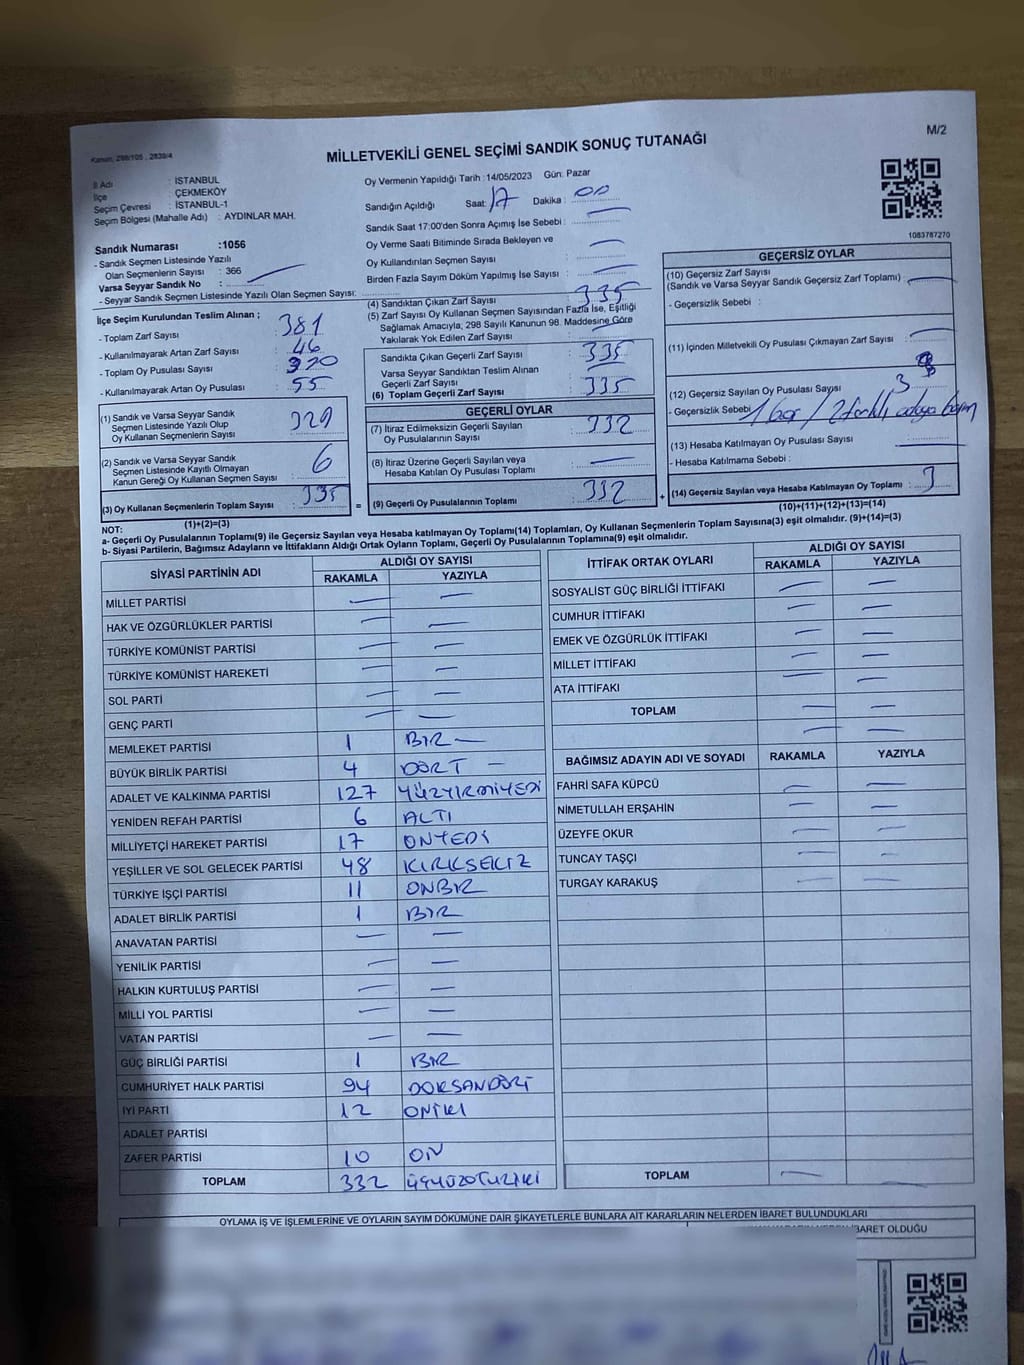 M/2
Kanun: 298/105 , 2839/4
MİLLETVEKİLİ GENEL SEÇİMİ SANDIK SONUÇ TUTANAĞI
İl Adı : İSTANBUL
İlçe : ÇEKMEKÖY
Seçim Çevresi : İSTANBUL-1
Seçim Bölgesi (Mahalle Adı) : AYDINLAR MAH.
Oy Vermenin Yapıldığı Tarih : 14/05/2023 Gün: Pazar
Sandığın Açıldığı Saat: 17 Dakika : 00
Sandık Saat 17:00'den Sonra Açımış İse Sebebi : —
Oy Verme Saati Bitiminde Sırada Bekleyen ve
Oy Kullandırılan Seçmen Sayısı : —
Birden Fazla Sayım Döküm Yapılmış İse Sayısı : —
1083787270
Sandık Numarası :1056
- Sandık Seçmen Listesinde Yazılı
Olan Seçmenlerin Sayısı : 366
Varsa Seyyar Sandık No : —
- Seyyar Sandık Seçmen Listesinde Yazılı Olan Seçmen Sayısı:
İlçe Seçim Kurulundan Teslim Alınan ;
- Toplam Zarf Sayısı : 381
- Kullanılmayarak Artan Zarf Sayısı : 46
- Toplam Oy Pusulası Sayısı :
- Kullanılmayarak Artan Oy Pusulası : 55
(1) Sandık ve Varsa Seyyar Sandık
Seçmen Listesinde Yazılı Olup
Oy Kullanan Seçmenlerin Sayısı : 329
(2) Sandık ve Varsa Seyyar Sandık
Seçmen Listesinde Kayıtlı Olmayan
Kanun Gereği Oy Kullanan Seçmen Sayısı : 6
(3) Oy Kullanan Seçmenlerin Toplam Sayısı : 335
(1)+(2)=(3)
(4) Sandıktan Çıkan Zarf Sayısı : 335
(5) Zarf Sayısı Oy Kullanan Seçmen Sayısından Fazla İse, Eşitliği
Sağlamak Amacıyla, 298 Sayılı Kanunun 98. Maddesine Göre
Yakılarak Yok Edilen Zarf Sayısı : —
Sandıkta Çıkan Geçerli Zarf Sayısı : 335
Varsa Seyyar Sandıktan Teslim Alınan
Geçerli Zarf Sayısı : —
(6) Toplam Geçerli Zarf Sayısı : 335
GEÇERLİ OYLAR
(7) İtiraz Edilmeksizin Geçerli Sayılan
Oy Pusulalarının Sayısı : 332
(8) İtiraz Üzerine Geçerli Sayılan veya
Hesaba Katılan Oy Pusulası Toplamı : —
= (9) Geçerli Oy Pusulalarının Toplamı : 332 +
GEÇERSİZ OYLAR
(10) Geçersiz Zarf Sayısı
(Sandık ve Varsa Seyyar Sandık Geçersiz Zarf Toplamı) : —
- Geçersizlik Sebebi :
(11) İçinden Milletvekili Oy Pusulası Çıkmayan Zarf Sayısı : —
(12) Geçersiz Sayılan Oy Pusulası Sayısı : 3
- Geçersizlik Sebebi : 1 boş / 2 farklı
(13) Hesaba Katılmayan Oy Pusulası Sayısı : —
- Hesaba Katılmama Sebebi :
(14) Geçersiz Sayılan veya Hesaba Katılmayan Oy Toplamı : 3
(10)+(11)+(12)+(13)=(14)
NOT:
a- Geçerli Oy Pusulalarının Toplamı(9) ile Geçersiz Sayılan veya Hesaba katılmayan Oy Toplamı(14) Toplamları, Oy Kullanan Seçmenlerin Toplam Sayısına(3) eşit olmalıdır. (9)+(14)=(3)
b- Siyasi Partilerin, Bağımsız Adayların ve İttifakların Aldığı Ortak Oyların Toplamı, Geçerli Oy Pusulalarının Toplamına(9) eşit olmalıdır.
SİYASİ PARTİNİN ADI ALDIĞI OY SAYISI
RAKAMLA YAZIYLA
MİLLET PARTİSİ — —
HAK VE ÖZGÜRLÜKLER PARTİSİ — —
TÜRKİYE KOMÜNİST PARTİSİ — —
TÜRKİYE KOMÜNİST HAREKETİ — —
SOL PARTİ — —
GENÇ PARTİ — —
MEMLEKET PARTİSİ 1 BİR —
BÜYÜK BİRLİK PARTİSİ 4 DÖRT —
ADALET VE KALKINMA PARTİSİ 127 YÜZYİRMİYEDİ
YENİDEN REFAH PARTİSİ 6 ALTI
MİLLİYETÇİ HAREKET PARTİSİ 17 ONYEDİ
YEŞİLLER VE SOL GELECEK PARTİSİ 48 KIRKSEKİZ
TÜRKİYE İŞÇİ PARTİSİ 11 ONBİR
ADALET BİRLİK PARTİSİ 1 BİR
ANAVATAN PARTİSİ — —
YENİLİK PARTİSİ — —
HALKIN KURTULUŞ PARTİSİ — —
MİLLİ YOL PARTİSİ — —
VATAN PARTİSİ — —
GÜÇ BİRLİĞİ PARTİSİ 1 BİR
CUMHURİYET HALK PARTİSİ 94 DOKSANDÖRT
İYİ PARTİ 12 ONİKİ
ADALET PARTİSİ
ZAFER PARTİSİ 10 ON
TOPLAM 332 ÜÇYÜZOTUZİKİ
İTTİFAK ORTAK OYLARI ALDIĞI OY SAYISI
RAKAMLA YAZIYLA
SOSYALİST GÜÇ BİRLİĞİ İTTİFAKI — —
CUMHUR İTTİFAKI — —
EMEK VE ÖZGÜRLÜK İTTİFAKI — —
MİLLET İTTİFAKI — —
ATA İTTİFAKI — —
TOPLAM — —
— —
BAĞIMSIZ ADAYIN ADI VE SOYADI RAKAMLA YAZIYLA
FAHRİ SAFA KÜPCÜ — —
NİMETULLAH ERŞAHİN — —
ÜZEYFE OKUR — —
TUNCAY TAŞÇI — —
TURGAY KARAKUŞ — —
TOPLAM —
OYLAMA İŞ VE İŞLEMLERİNE VE OYLARIN SAYIM DÖKÜMÜNE DAİR ŞİKAYETLERLE BUNLARA AİT KARARLARIN NELERDEN İBARET BULUNDUKLARI
İBARET OLDUĞU